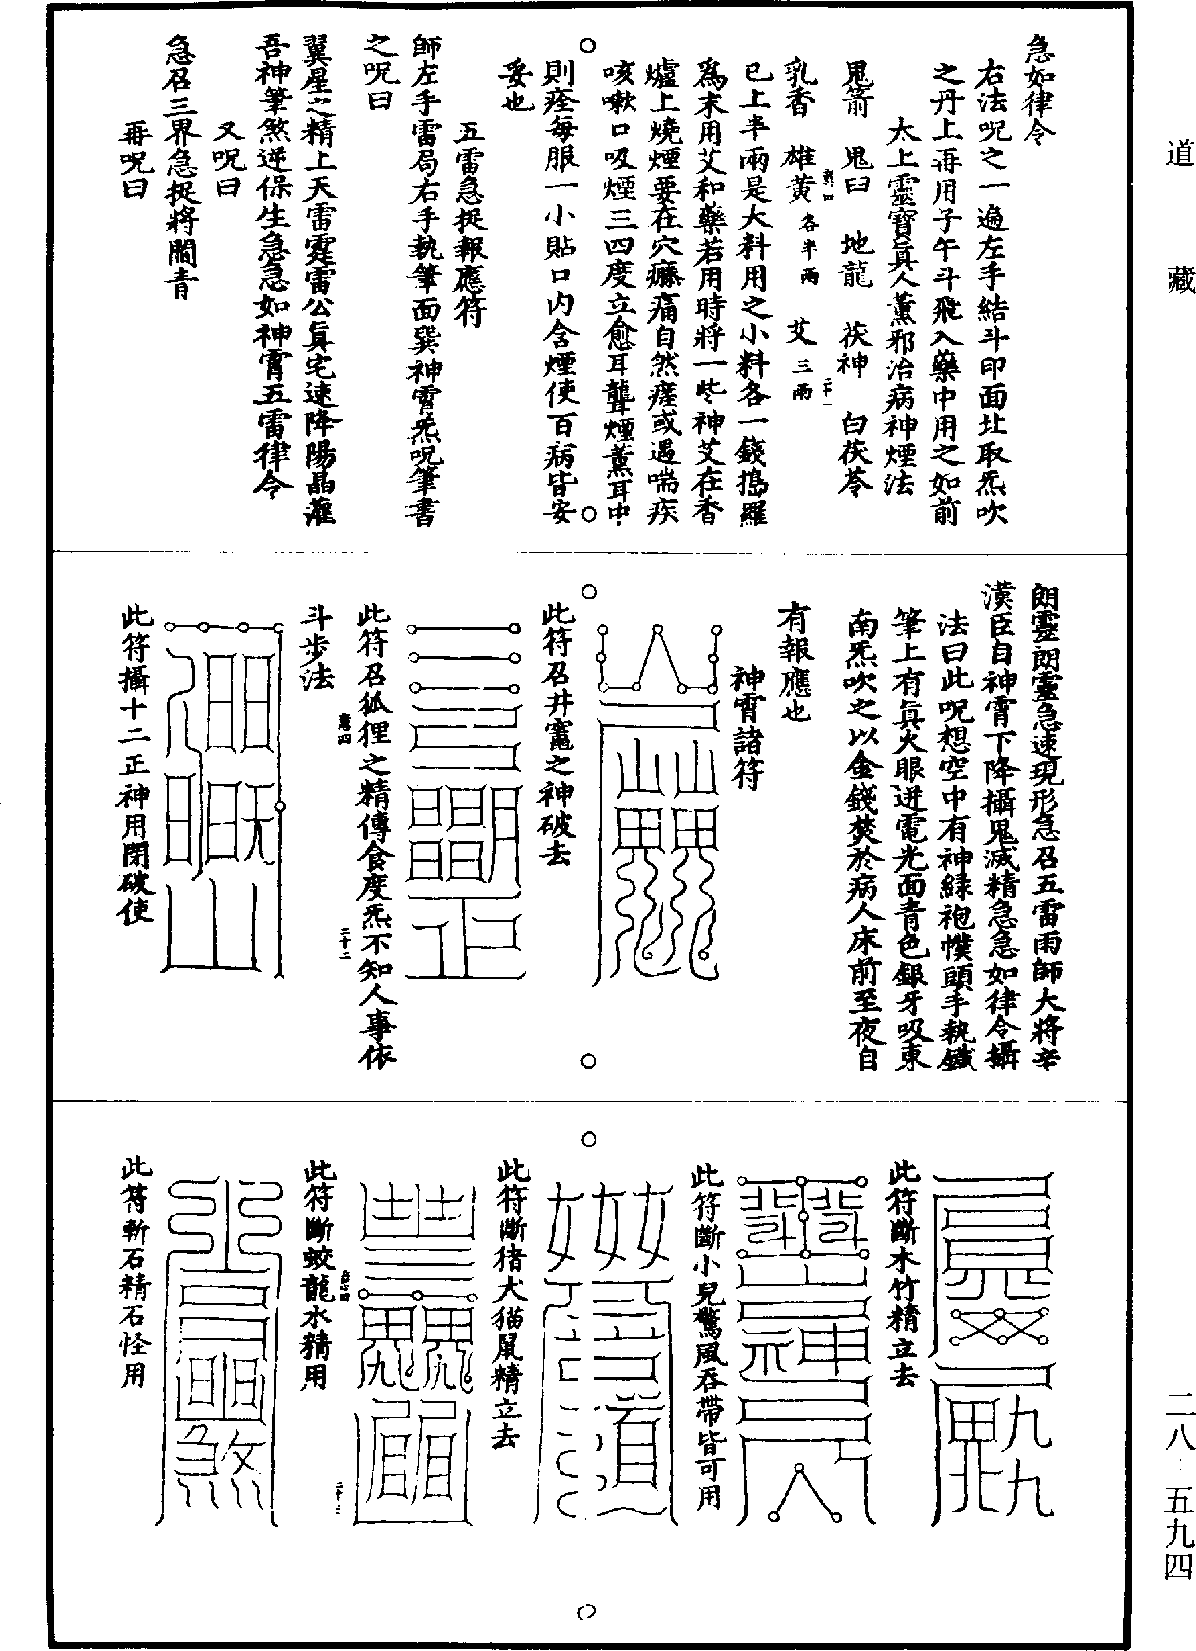 道藏
急如律令
右法呪之一遍左手結斗印面北取炁吹
之丹上再用子午斗飛入藥中用之如前
太上靈寶眞人薰邪治病神煙法
鬼箭 鬼臼 地龍 茯神 白茯苓
乳香 雄黃各半兩 艾三兩
已上半兩是大料用之小料各一錢搗羅
爲末用艾和藥若用時將一些神艾在香
爐上燒煙要在穴癢痛自然痊或遇喘疾
咳嗽口吸煙三四度立愈耳聾煙薰耳中
則痊每服一小貼口内含煙使百病皆安
妥也
五雷急捉報應符
師左手雷局右手執筆面巽神霄炁呪筆書
之呪曰
翼星之精上天雷霆雷公眞宅速降陽晶灌
吾神筆煞逆保生急急如神霄五雷律令
又呪曰
急召三界急捉將閻青
再呪曰
朗靈朗靈急速現形急召五雷雨師大將辛
漢臣自神霄下降攝鬼滅精急急如律令攝
法曰此呪想空中有神綠袍幞頭手執鐵
筆上有眞火眼迸電光面青色銀牙吸東
南炁吹之以金錢焚於病人床前至夜自
有報應也
神霄諸符
此符召井竈之神破去
此符召狐狸之精傳食度炁不知人事依
斗步法
此符攝十二正神用閉破使
此符斷木竹精立去
此符斷小兒驚風吞帶皆可用
此符斷猪犬猫鼠精立去
此符斷蛟龍水精用
此符斬石精石怪用
二八·五九四